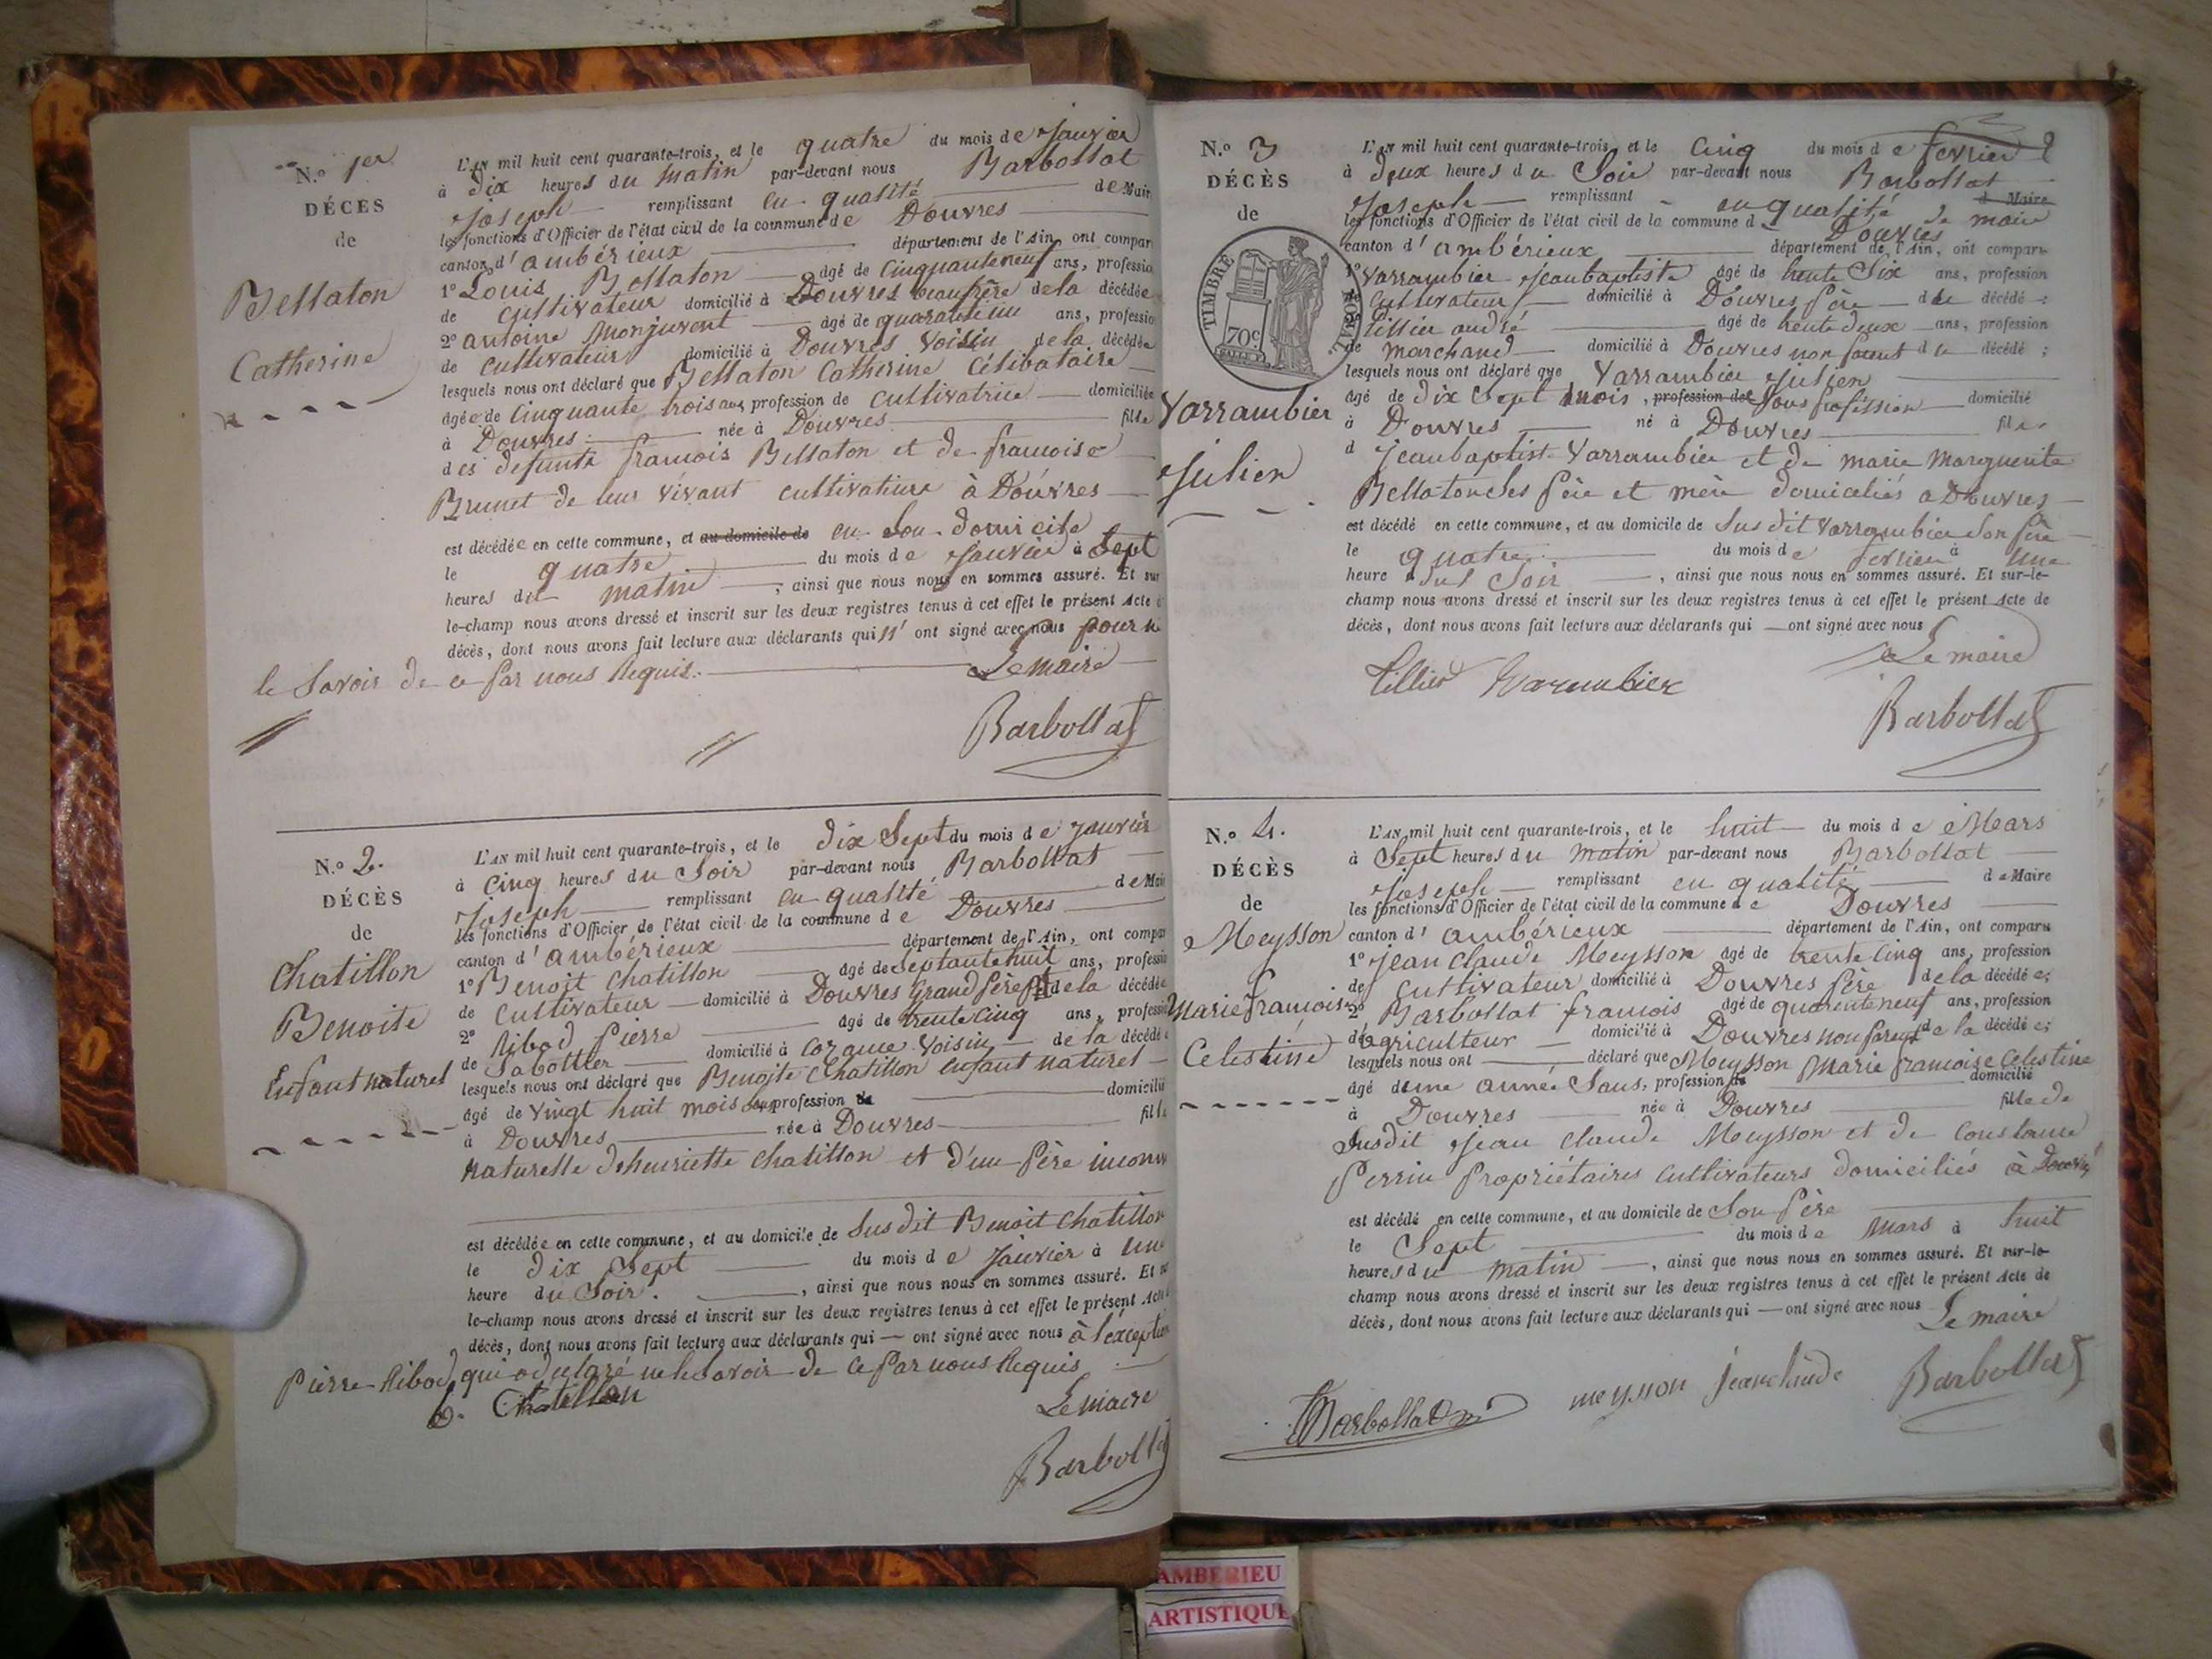 N.o 1er
DÉCÈS
de
Bellaton
Catherine
L'AN mil huit cent quarante-trois, et le quatre du mois de Janvier
à dix heures du matin par-devant nous Barbollat
Joseph remplissant en qualité de Mair
les fonctions d'Officier de l'état civil de la commune de Douvres
canton d'ambérieux département de l'Ain, ont compar
1º Louis Bellaton âgé de Cinquante neuf ans, professio
de cultivateur domicilié à Douvres beaufrère de la décédée
2º antoine Monjuvent âgé de quarante un ans, professio
de cultivateur domicilié à Douvres Voisin de la décédée
lesquels nous ont déclaré que Bellaton Catherine Célibataire
âgée de Cinquante trois ans profession de cultivatrice domiciliée
à Douvres née à Douvres fille
des defunts francois Bellaton et de francoise
Brunet de leur vivant cultivateurs à Douvres
est décédée en cette commune, et au domicile de en Son domicile
le quatre du mois de Janvier à Sept
heures du matin, ainsi que nous nous en sommes assuré. Et sur
le-champ nous avons dressé et inscrit sur les deux registres tenus à cet effet le présent Acte
décès, dont nous avons fait lecture aux déclarants qui n'ont signé avec nous pour n
le Savoir de ce par nous Requis.
Le maire
Barbollat
N.o 2.
DÉCÈS
de
Chatillon
Benoite
Enfant naturel
L'AN mil huit cent quarante-trois, et le dix Sept du mois de Janvier
à Cinq heures du Soir par-devant nous Barbollat
Joseph remplissant en qualité de Mair
les fonctions d'Officier de l'état civil de la commune de Douvres
canton d'ambérieux département de l'Ain, ont compar
1º Benoit Chatillon âgé de Septante huit ans, professio
de Cultivateur domicilié à Douvres Grand père de la décédée
2º Ribod Pierre âgé de trente cinq ans, professio
de Sabottier domicilié à Voisin de la décédé
lesquels nous ont déclaré que Benoite Chatillon enfant naturel
âgé de Vingt huit mois Sans profession de domicilié
à Douvres née à Douvres fille
naturelle de henriette Chatillon et d'un Père inconn
est décédée en cette commune, et au domicile de Susdit Benoit Chatillon
le dix Sept du mois de Janvier à une
heure du Soir., ainsi que nous nous en sommes assuré. Et su
le-champ nous avons dressé et inscrit sur les deux registres tenus à cet effet le présent Acte
décès, dont nous avons fait lecture aux déclarants qui ont signé avec nous à l'exception
Pierre Ribod qui a declaré ne le Savoir de ce Par nous Requis
b. Chatellon
Le maire
Barbollat
N.o 3
DÉCÈS
de
TIMBRE ROYAL
70c
Varrambier
Julien
L'AN mil huit cent quarante-trois, et le Cinq du mois de fevrier
à deux heures du Soir par-devant nous Barbollat
Joseph remplissant en qualité d Maire
de maire
les fonctions d'Officier de l'état civil de la commune d Douvres
canton d'ambérieux département de l'Ain, ont comparu
1º Varrambier Jeanbaptiste âgé de trente Six ans, profession
de Cultivateur domicilié à Douvres, père du décédé
2º Tillier andré âgé de trente deux ans, profession
de marchand domicilié à Douvres non parent du décédé;
lesquels nous ont déclaré que Varrambier Julien
âgé de dix Sept mois, profession de Sans profession domicilié
à Douvres né à Douvres fils
d Jeanbaptiste Varrambier et de marie Marguerite
Bellaton Ses père et mère domiciliés a Douvres
est décédé en cette commune, et au domicile de Susdit Varrambier Son père
le quatre du mois de fevrier à une
heure du Soir, ainsi que nous nous en sommes assuré. Et sur-le-
champ nous avons dressé et inscrit sur les deux registres tenus à cet effet le présent Acte de
décès, dont nous avons fait lecture aux déclarants qui ont signé avec nous
Le maire
Tillier Varambier
Barbollat
N.o 4.
DÉCÈS
de
Meysson
Marie francoise
Celestine
L'AN mil huit cent quarante-trois, et le huit du mois de Mars
à Sept heures du matin par-devant nous Barbollat
Joseph remplissant en qualité de Maire
les fonctions d'Officier de l'état civil de la commune de Douvres
canton d'ambérieux département de l'Ain, ont comparu
1º Jean Claude Meysson âgé de trente Cinq ans, profession
de Cultivateur domicilié à Douvres père de la décédée;
2º Barbollat francois âgé de quarante neuf ans, profession
d'agriculteur domicilié à Douvres non parent de la décédée;
lesquels nous ont déclaré que Meysson Marie francoise Celestine
âgé dune année Sans, profession de domicilié
à Douvres née à Douvres fille de
Susdit Jean Claude Meysson et de Constance
Perrin Propriétaires cultivateurs domiciliés à Douvres
est décédé en cette commune, et au domicile de Son Père
le Sept du mois de Mars à huit
heures du matin, ainsi que nous nous en sommes assuré. Et sur-le-
champ nous avons dressé et inscrit sur les deux registres tenus à cet effet le présent Acte de
décès, dont nous avons fait lecture aux déclarants qui ont signé avec nous
Le maire
Barbollat meysson jeanclaude Barbollat
AMBERIEU
ARTISTIQUE